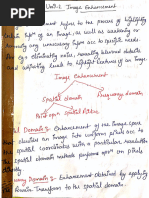 Unit-2 Image Enhancement
refers to the process of highlighting
certain of an image, as well as weakening or
removing any unnecessary infor acc to specific needs.
For eg eliminating noise, revealing blurred details
and adjusting levels to highlight features of an image.
Image Enhancement
Spatial domain
Frequency domain
Enhancement of the image space
that divides an image into uniform pixels acc to
the spatial coordinates with a particular resolution.
The spatial domain methods perform oper<sup>n</sup> on pixels
directly.
Domain:- Enhancement obtained by applying
the Fourier Transform to the spatial domain.